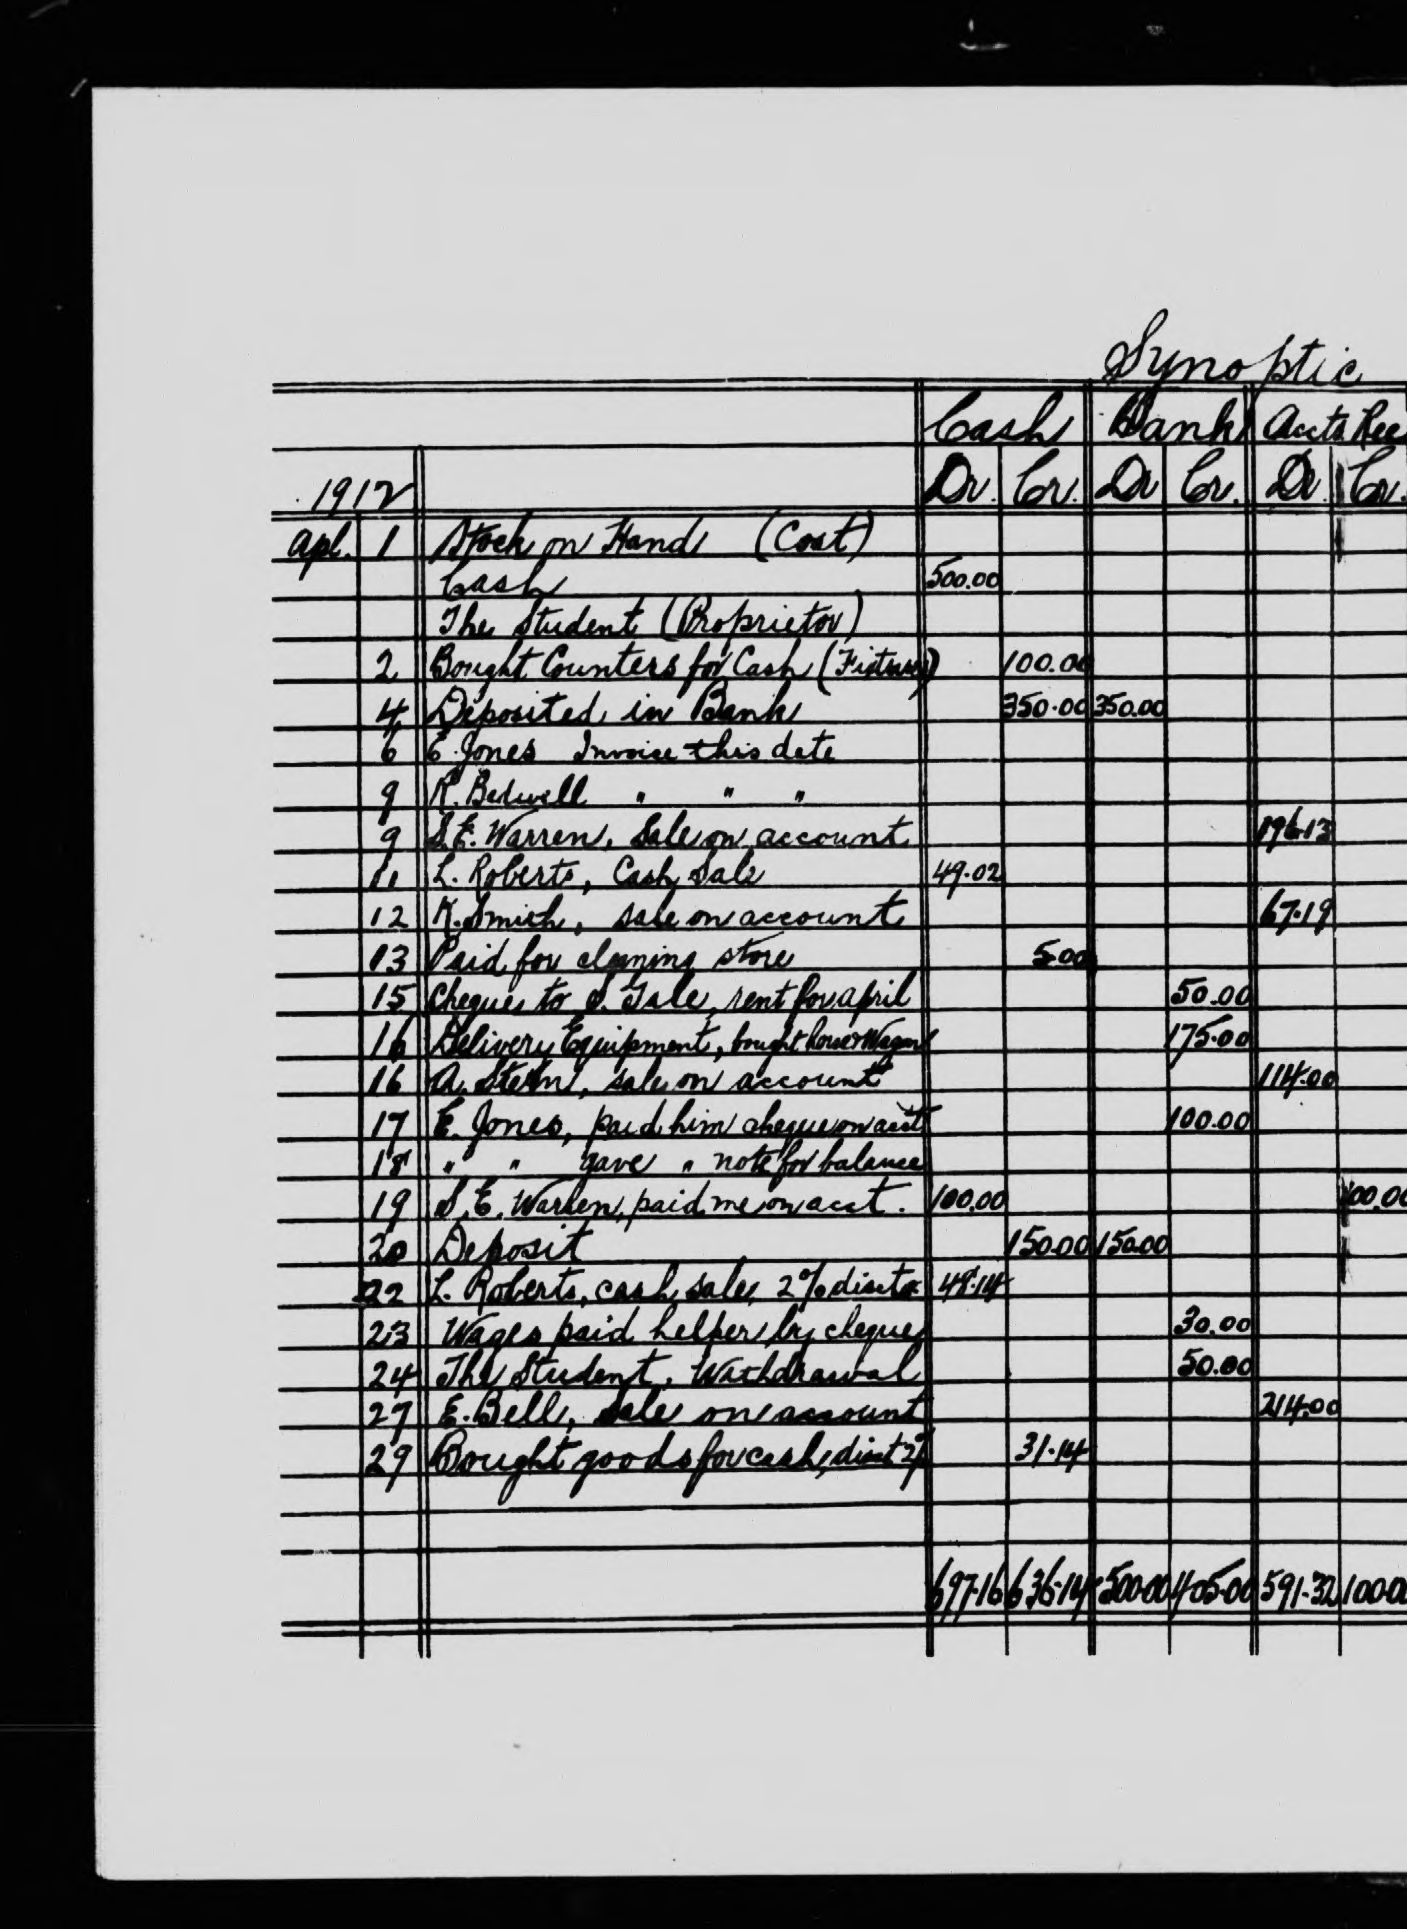 Synoptic
Cash Bank Accts Rec
1912 Dr. Cr. Dr Cr. Dr. Cr.
Apl. 1 Stock on Hand (Cost)
Cash 500.00
The Student (Proprietor)
2 Bought Counters for Cash (Fixtures) 100.00
4 Deposited in Bank 350.00 350.00
6 E. Jones Invoice this date
9 R. Bedwell " " "
9 S.E. Warren, Sale on account 196.13
11 L. Roberts, Cash Sale 49.02
12 K. Smith, sale on account 67.19
13 Paid for cleaning store 5.00
15 Cheque to S. Tale, rent for april 50.00
16 Delivery Equipment, bought horse & Wagon 175.00
16 A. Stern, sale on account 114.00
17 E. Jones, paid him cheque on acct 100.00
18 " " gave " note for balance
19 S. E. Warren, paid me on acct. 100.00 100.00
20 Deposit 150.00 150.00
22 L. Roberts, cash sale, 2% disct 48.14
23 Wages paid helper by cheque 30.00
24 The Student, Withdrawal 50.00
27 E. Bell, Sale on account 214.00
29 Bought goods for cash, disct 2% 31.14
697.16 636.14 500.00 405.00 591.32 100.0